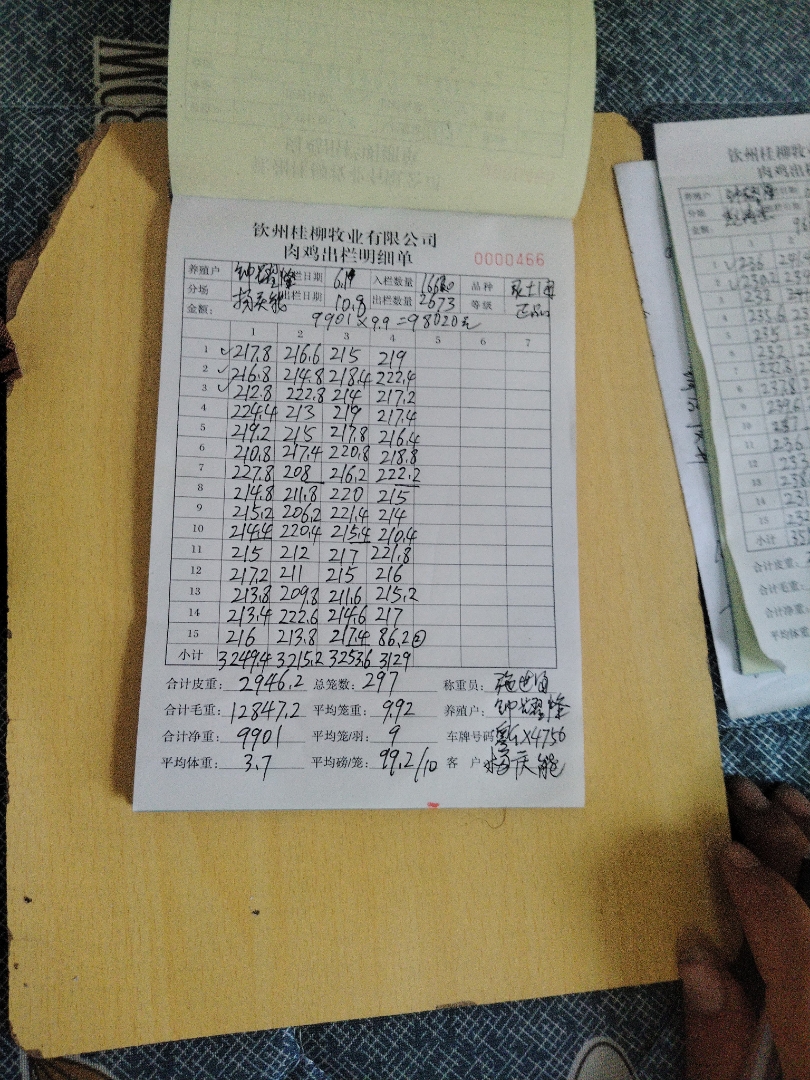 钦州桂柳牧业有限公司
肉鸡出栏明细单
0000466
养殖户 钟耀隆 入栏日期 6.19 入栏数量 品种
分场 杨庆能 出栏日期 10.9 出栏数量 2673 等级 正品
金额: 9901×9.9=98020元
1 2 3 4 5 6 7
1 217.8 216.6 215 219
2 216.8 214.8 218.4 222.4
3 212.8 222.8 214 217.2
4 224.4 213 219 217.4
5 219.2 215 217.8 216.4
6 210.8 217.4 220.8 218.8
7 227.8 208 216.2 222.2
8 214.8 211.8 220 215
9 215.2 206.2 221.4 214
10 214.4 220.4 215.4 210.4
11 215 212 217 221.8
12 217.2 211 215 216
13 213.8 209.8 211.6 215.2
14 213.4 222.6 214.6 217
15 216 213.8 217.4 86.2②
小计 3249.4 3215.2 3253.6 3129
合计皮重: 2946.2 总笼数: 297 称重员:
合计毛重: 12847.2 平均笼重: 9.92 养殖户: 钟耀隆
合计净重: 9901 平均笼/羽: 9 车牌号码 X4756
平均体重: 3.7 平均磅/笼: 99.2/10 客户 杨庆能
钦州桂柳牧业
肉鸡出栏
养殖户
分场
金额:
1 236
2 230.2
3 232
4 235.6
5 235
6 232
7 232.8
8
9 239.6
10
11 236
12
13
14
15
小计
合计皮重:
合计毛重:
合计净重:
平均体重: